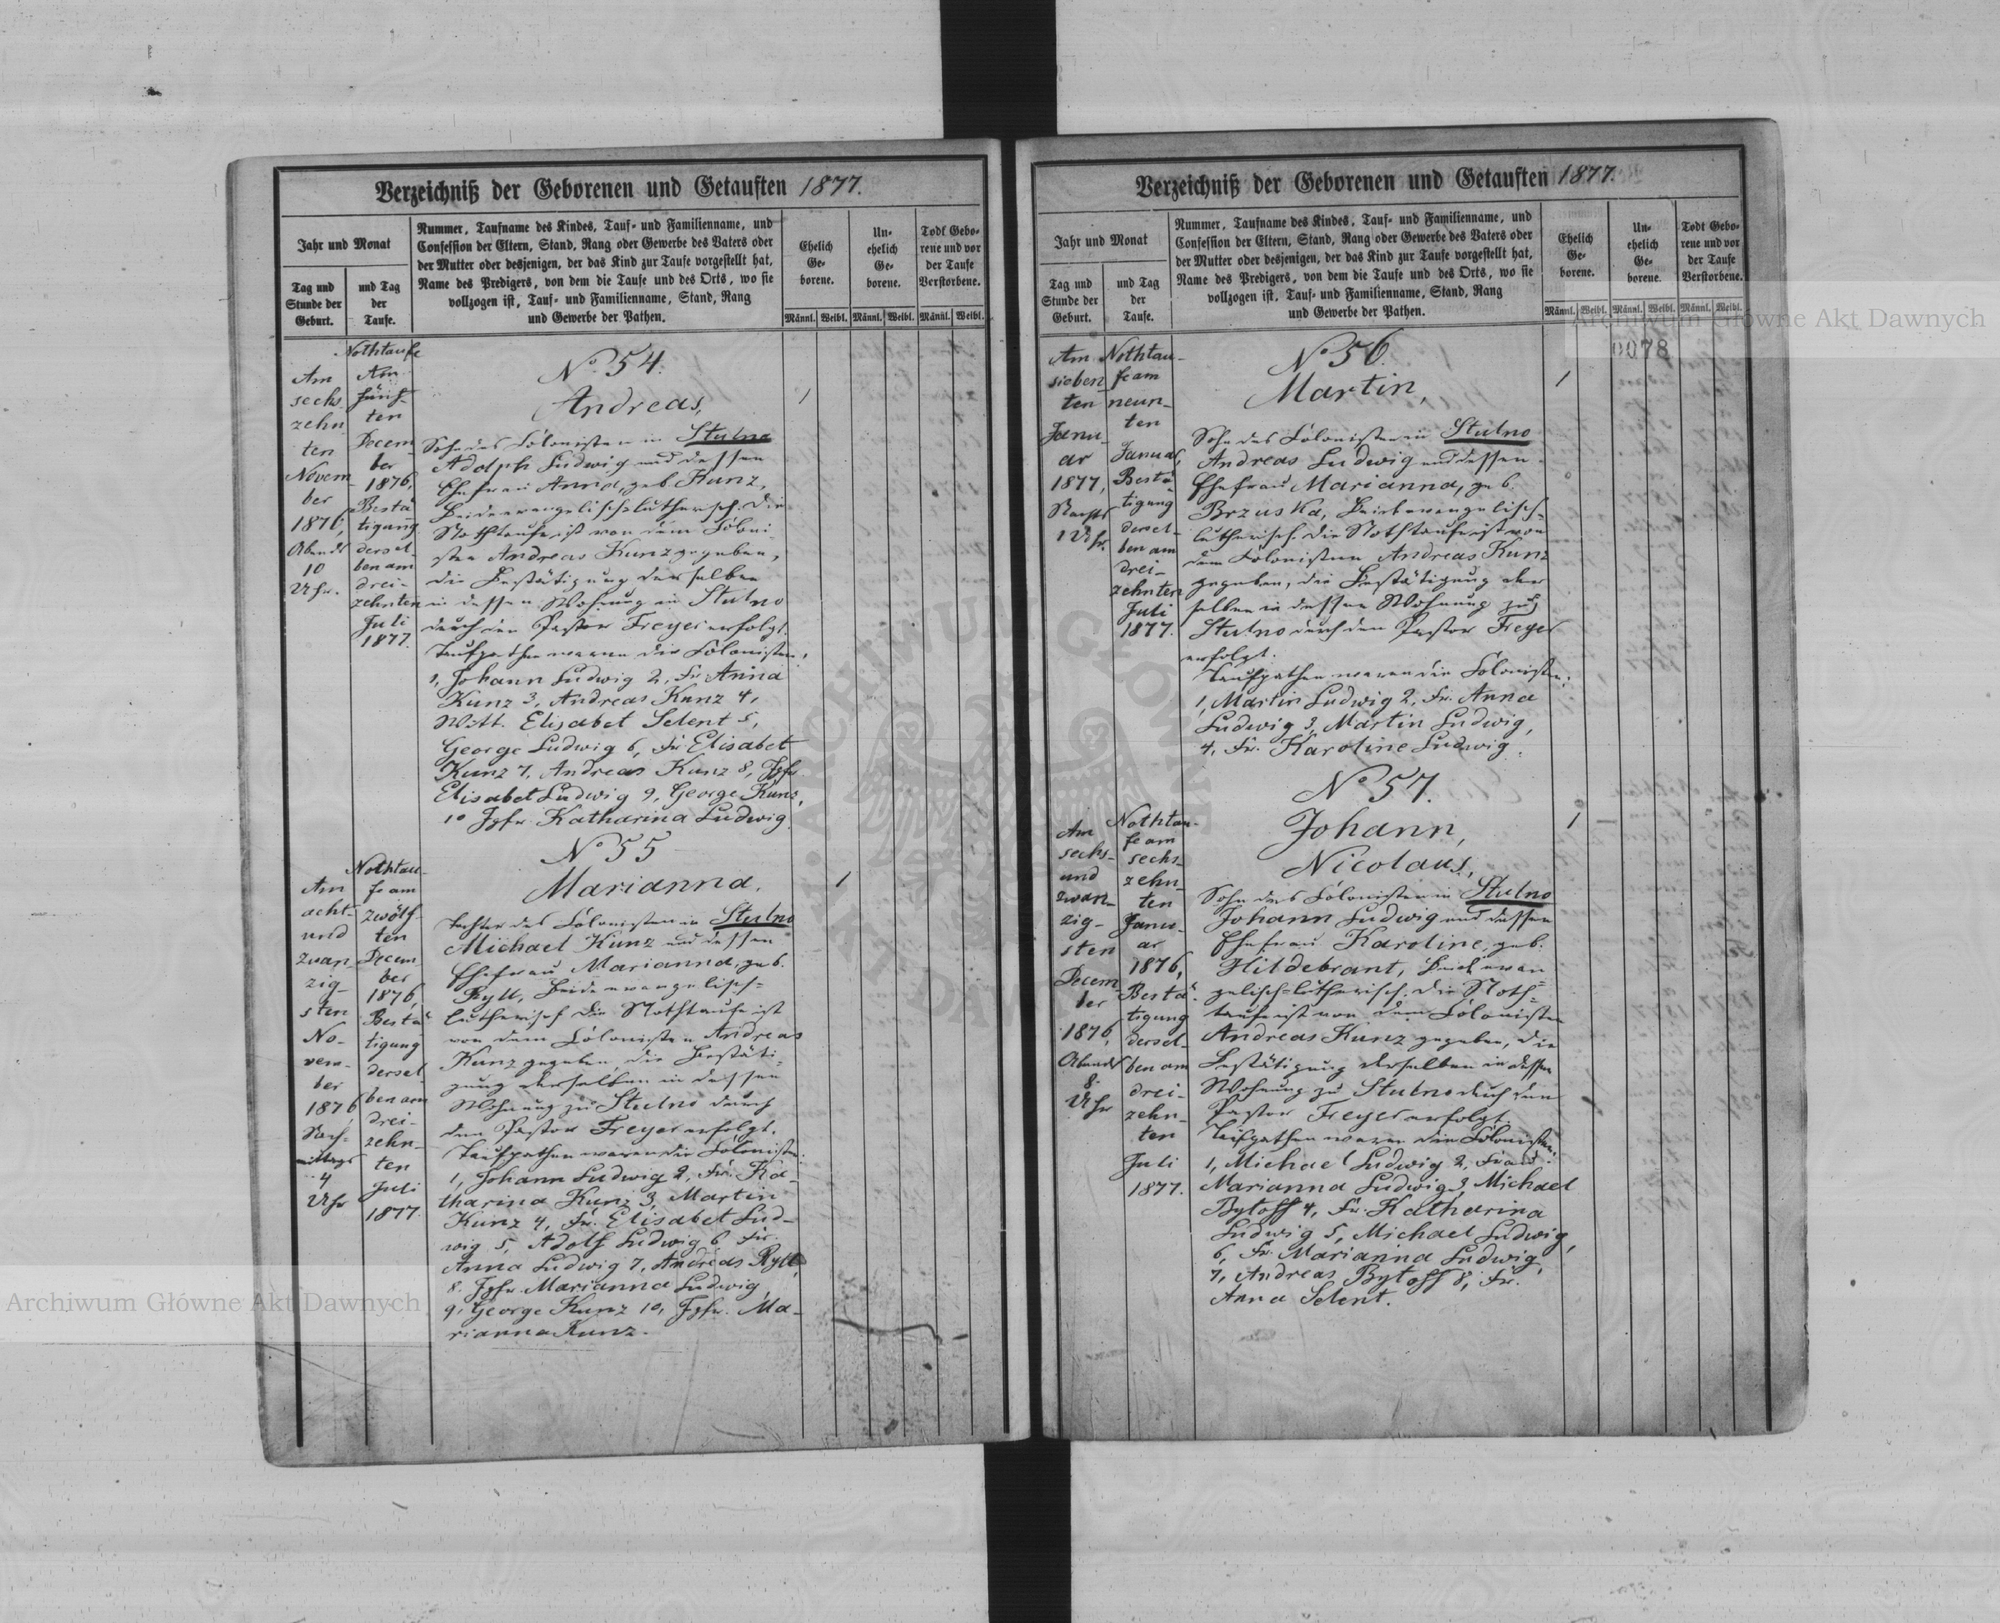 Verzeichniß der Geborenen und Getauften 1877.
Jahr und Monat
Tag und
Stunde der
Geburt.
und Tag
der
Taufe.
Nummer, Taufname des Kindes, Tauf- und Familienname, und
Confession der Eltern, Stand, Rang oder Gewerbe des Vaters oder
der Mutter oder desjenigen, der das Kind zur Taufe vorgestellt hat,
Name des Predigers, von dem die Taufe und des Orts, wo sie
vollzogen ist, Tauf- und Familienname, Stand, Rang
und Gewerbe der Pathen.
Ehelich
Ge-
borene.
Un-
ehelich
Ge-
borene.
Todt Gebo-
rene und vor
der Taufe
Verstorbene.
Männl. Weibl. Männl. Weibl. Männl. Weibl.
Am
sechs
zehn
ten
Novem-
ber
1876,
Abends
10
Uhr.
Nothtaufe
Am
fünf-
ten
Decem-
ber
1876,
Bestä-
tigung
dersel-
ben am
drei-
zehnten
Juli
1877.
No 54.
Andreas,
Sohn des Colonisten in Stulno
Adolph Ludwig und dessen
Ehefrau Anna, geb. Kunz,
Beide evangelisch-lutherisch. Die
Nothtaufe ist von dem Coloni-
sten Andreas Kunz gegeben,
die Bestätigung derselben
in dessen Wohnung in Stulno
durch den Pastor Freyer erfolgt.
Taufpathen waren die Colonisten:
1, Johann Ludwig 2, Fr. Anna
Kunz 3, Andreas Kunz 4,
Witt. Elisabet Selent 5,
George Ludwig 6, Fr. Elisabet
Kunz 7, Andreas Kunz 8, Jgfr.
Elisabet Ludwig 9, George Kunz,
10 Jgfr. Katharina Ludwig
1
Am
acht-
und
zwan-
zig-
sten
No-
vem-
ber
1876
Nach-
mittags
4
Uhr
Nothtau-
fe am
zwölf-
ten
Decem-
ber
1876,
Bestä-
tigung
dersel-
ben am
drei-
zehn-
ten
Juli
1877.
No 55
Marianna,
Tochter des Colonisten in Stulno
Michael Kunz und dessen
Ehefrau Marianna, geb.
Ryll, Beide evangelisch-
lutherisch. Die Nothtaufe ist
von dem Colonisten Andreas
Kunz gegeben, die Bestäti-
gung derselben in dessen
Wohnung zu Stulno durch
den Pastor Freyer erfolgt.
Taufpathen waren die Colonisten:
1, Johann Ludwig 2, Fr. Ka-
tharina Kunz 3, Martin
Kunz 4, Fr. Elisabet Lud-
wig 5, Adolf Ludwig 6 Fr.
Anna Ludwig 7, Andreas Ryll,
8. Jgfr. Marianna Ludwig,
9, George Kunz 10, Jgfr. Ma-
rianna Kunz.
1
Verzeichniß der Geborenen und Getauften 1877.
Jahr und Monat
Tag und
Stunde der
Geburt.
und Tag
der
Taufe.
Nummer, Taufname des Kindes, Tauf- und Familienname, und
Confession der Eltern, Stand, Rang oder Gewerbe des Vaters oder
der Mutter oder desjenigen, der das Kind zur Taufe vorgestellt hat,
Name des Predigers, von dem die Taufe und des Orts, wo sie
vollzogen ist, Tauf- und Familienname, Stand, Rang
und Gewerbe der Pathen.
Ehelich
Ge-
borene.
Un-
ehelich
Ge-
borene.
Todt Gebo-
rene und vor
der Taufe
Verstorbene.
Männl. Weibl. Männl. Weibl. Männl. Weibl.
0078
Am
sieben-
ten
Janu-
ar
1877,
Nachts
1 Uhr.
Nothtau-
fe am
neun-
ten
Januar,
Bestä-
tigung
dersel-
ben am
drei-
zehnten
Juli
1877.
No 56.
Martin,
Sohn des Colonisten in Stulno
Andreas Ludwig und dessen
Ehefrau Marianna, geb.
Brzuska, Beide evangelisch-
lutherisch. Die Nothtaufe ist von
dem Colonisten Andreas Kunz
gegeben, die Bestätigung der
selben in dessen Wohnung zu
Stulno durch den Pastor Freyer
erfolgt.
Taufpathen waren die Colonisten:
1, Martin Ludwig 2, Fr. Anna
Ludwig 3, Martin Ludwig,
4, Fr. Karoline Ludwig.
1
Am
sechs-
und
zwan-
zig-
sten
Decem-
ber
1876,
Abends
8.
Uhr
Nothtau-
fe am
sechs-
zehn-
ten
Janu-
ar
1876,
Bestä-
tigung
dersel-
ben am
drei-
zehn-
ten
Juli
1877.
No 57.
Johann,
Nicolaus,
Sohn des Colonisten in Stulno
Johann Ludwig und dessen
Ehefrau Karoline, geb.
Hildebrant, Beide evan-
gelisch-lutherisch. Die Noth-
taufe ist von dem Colonisten
Andreas Kunz gegeben, die
Bestätigung derselben in dessen
Wohnung zu Stulno durch den
Pastor Freyer erfolgt.
Taufpathen waren die Colonisten:
1, Michael Ludwig 2, Frau
Marianna Ludwig 3, Michael
Bytoff 4, Fr. Katharina
Ludwig 5, Michael Ludwig,
6, Fr. Marianna Ludwig,
7, Andreas Bytoff 8, Fr.
Anna Selent.
1
Archiwum Główne Akt Dawnych
Archiwum Główne Akt Dawnych